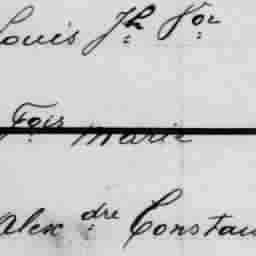 Louis Jh Vor
Fois Marie
Alex dre Constan